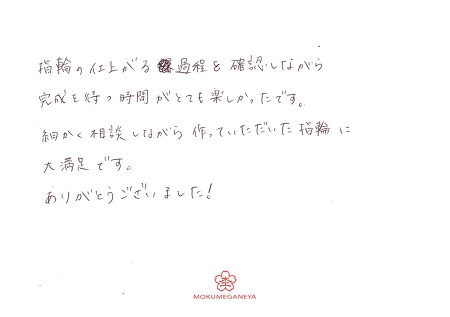 指輪の仕上がる過程を確認しながら
完成を待つ時間がとても楽しかったです。
細かく相談しながら作っていただいた指輪に
大満足です。
ありがとうございました!
MOKUMEGANEYA